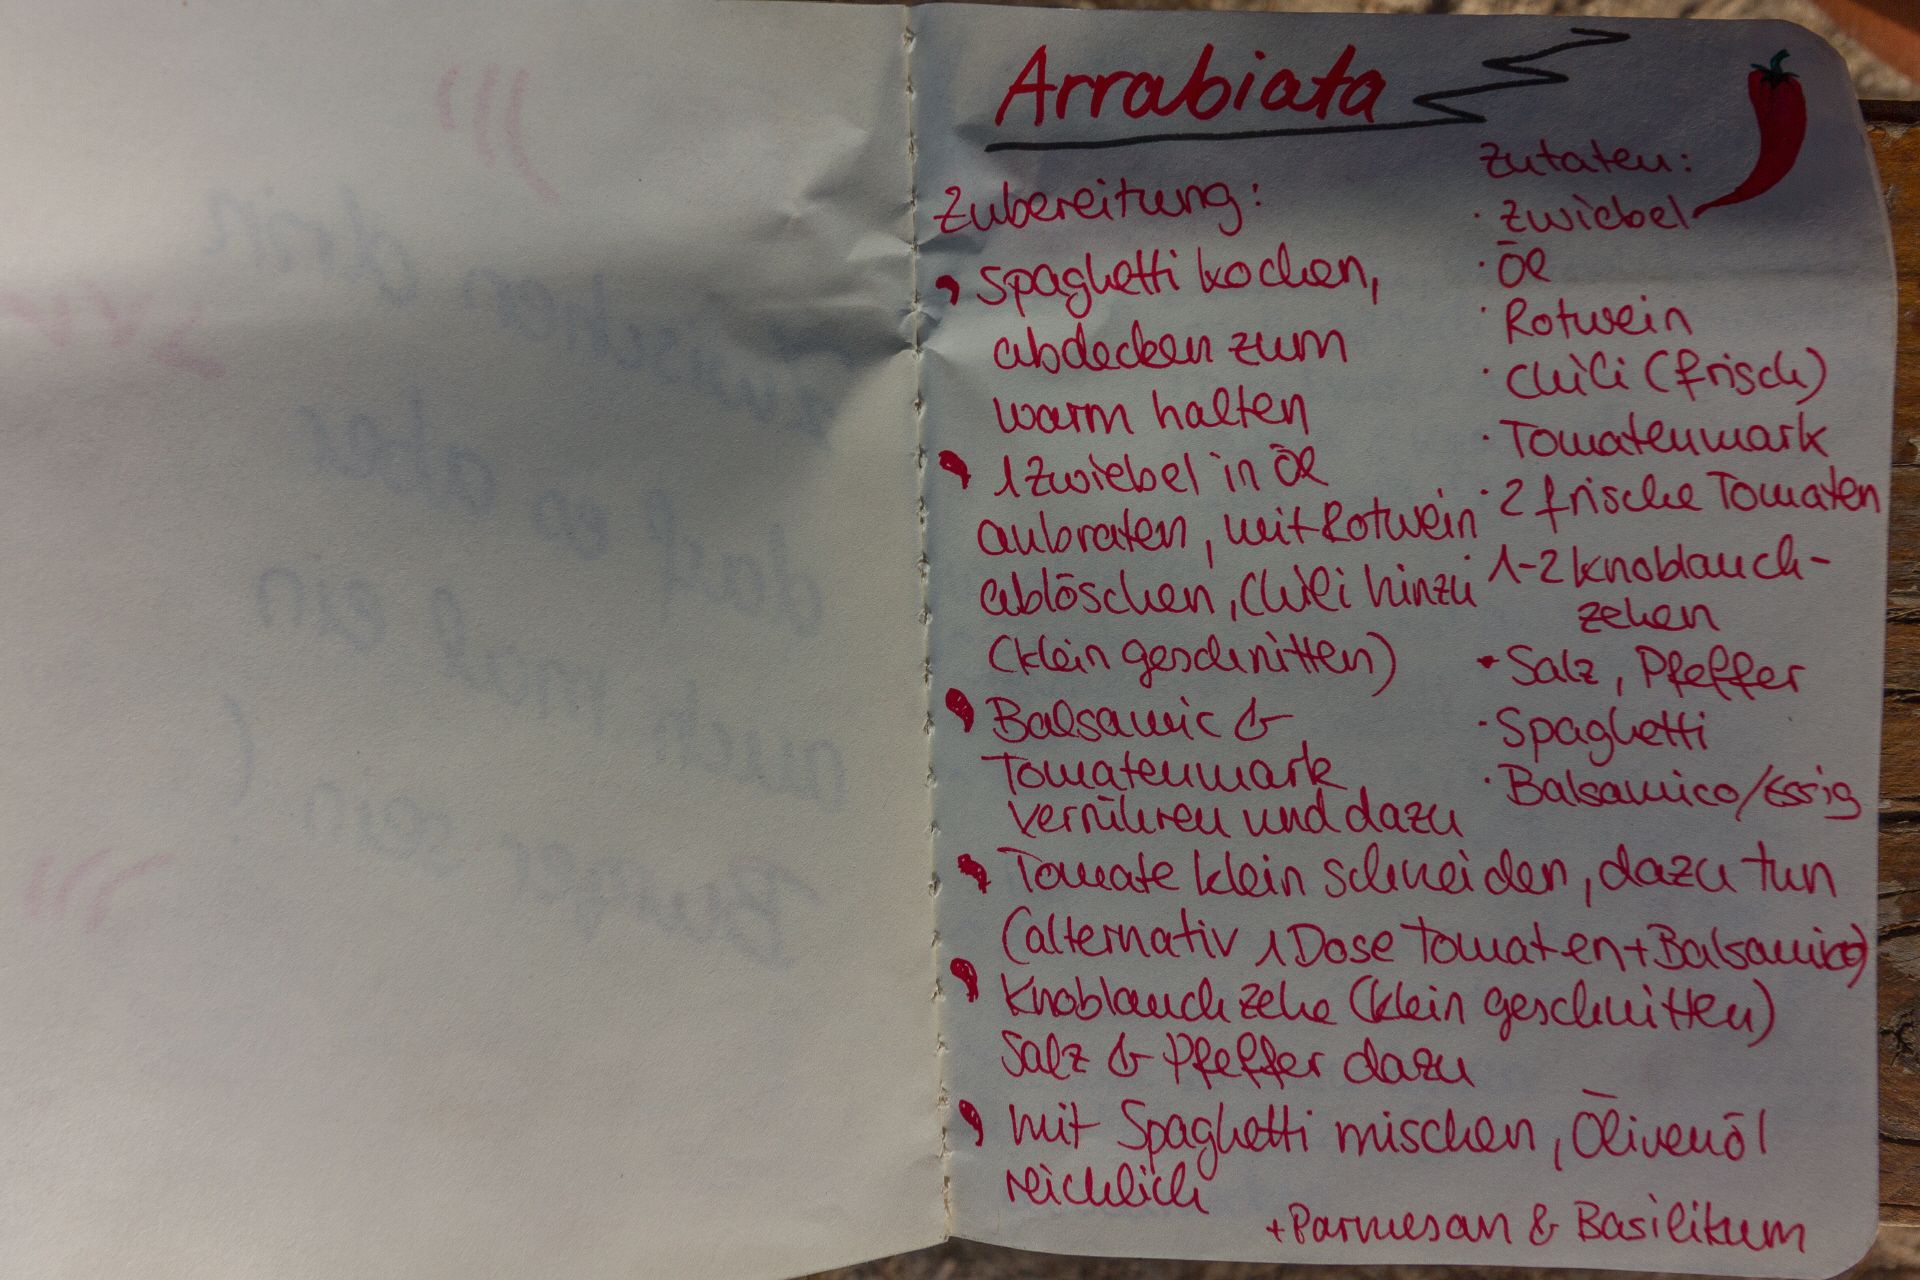 Arrabiata
Zubereitung:
Spaghetti kochen,
abdecken zum
warm halten
1 Zwiebel in Öl
anbraten, mit Rotwein
ablöschen, Chili hinzu
(klein geschnitten)
Balsamic &
Tomatenmark
verrühren und dazu
Tomate klein schneiden, dazu tun
(alternativ 1 Dose Tomaten + Balsamico)
Knoblauchzehe (klein geschnitten)
Salz & Pfeffer dazu
mit Spaghetti mischen, Ölivenöl
reichlich
+ Parmesan & Basilikum
Zutaten:
· Zwiebel
· Öl
· Rotwein
· Chili (frisch)
· Tomatenmark
· 2 frische Tomaten
· 1-2 Knoblauch-
zehen
· Salz, Pfeffer
· Spaghetti
· Balsamico/Essig
zwischen drin
darf es aber
auch mal ein
Burger sein!